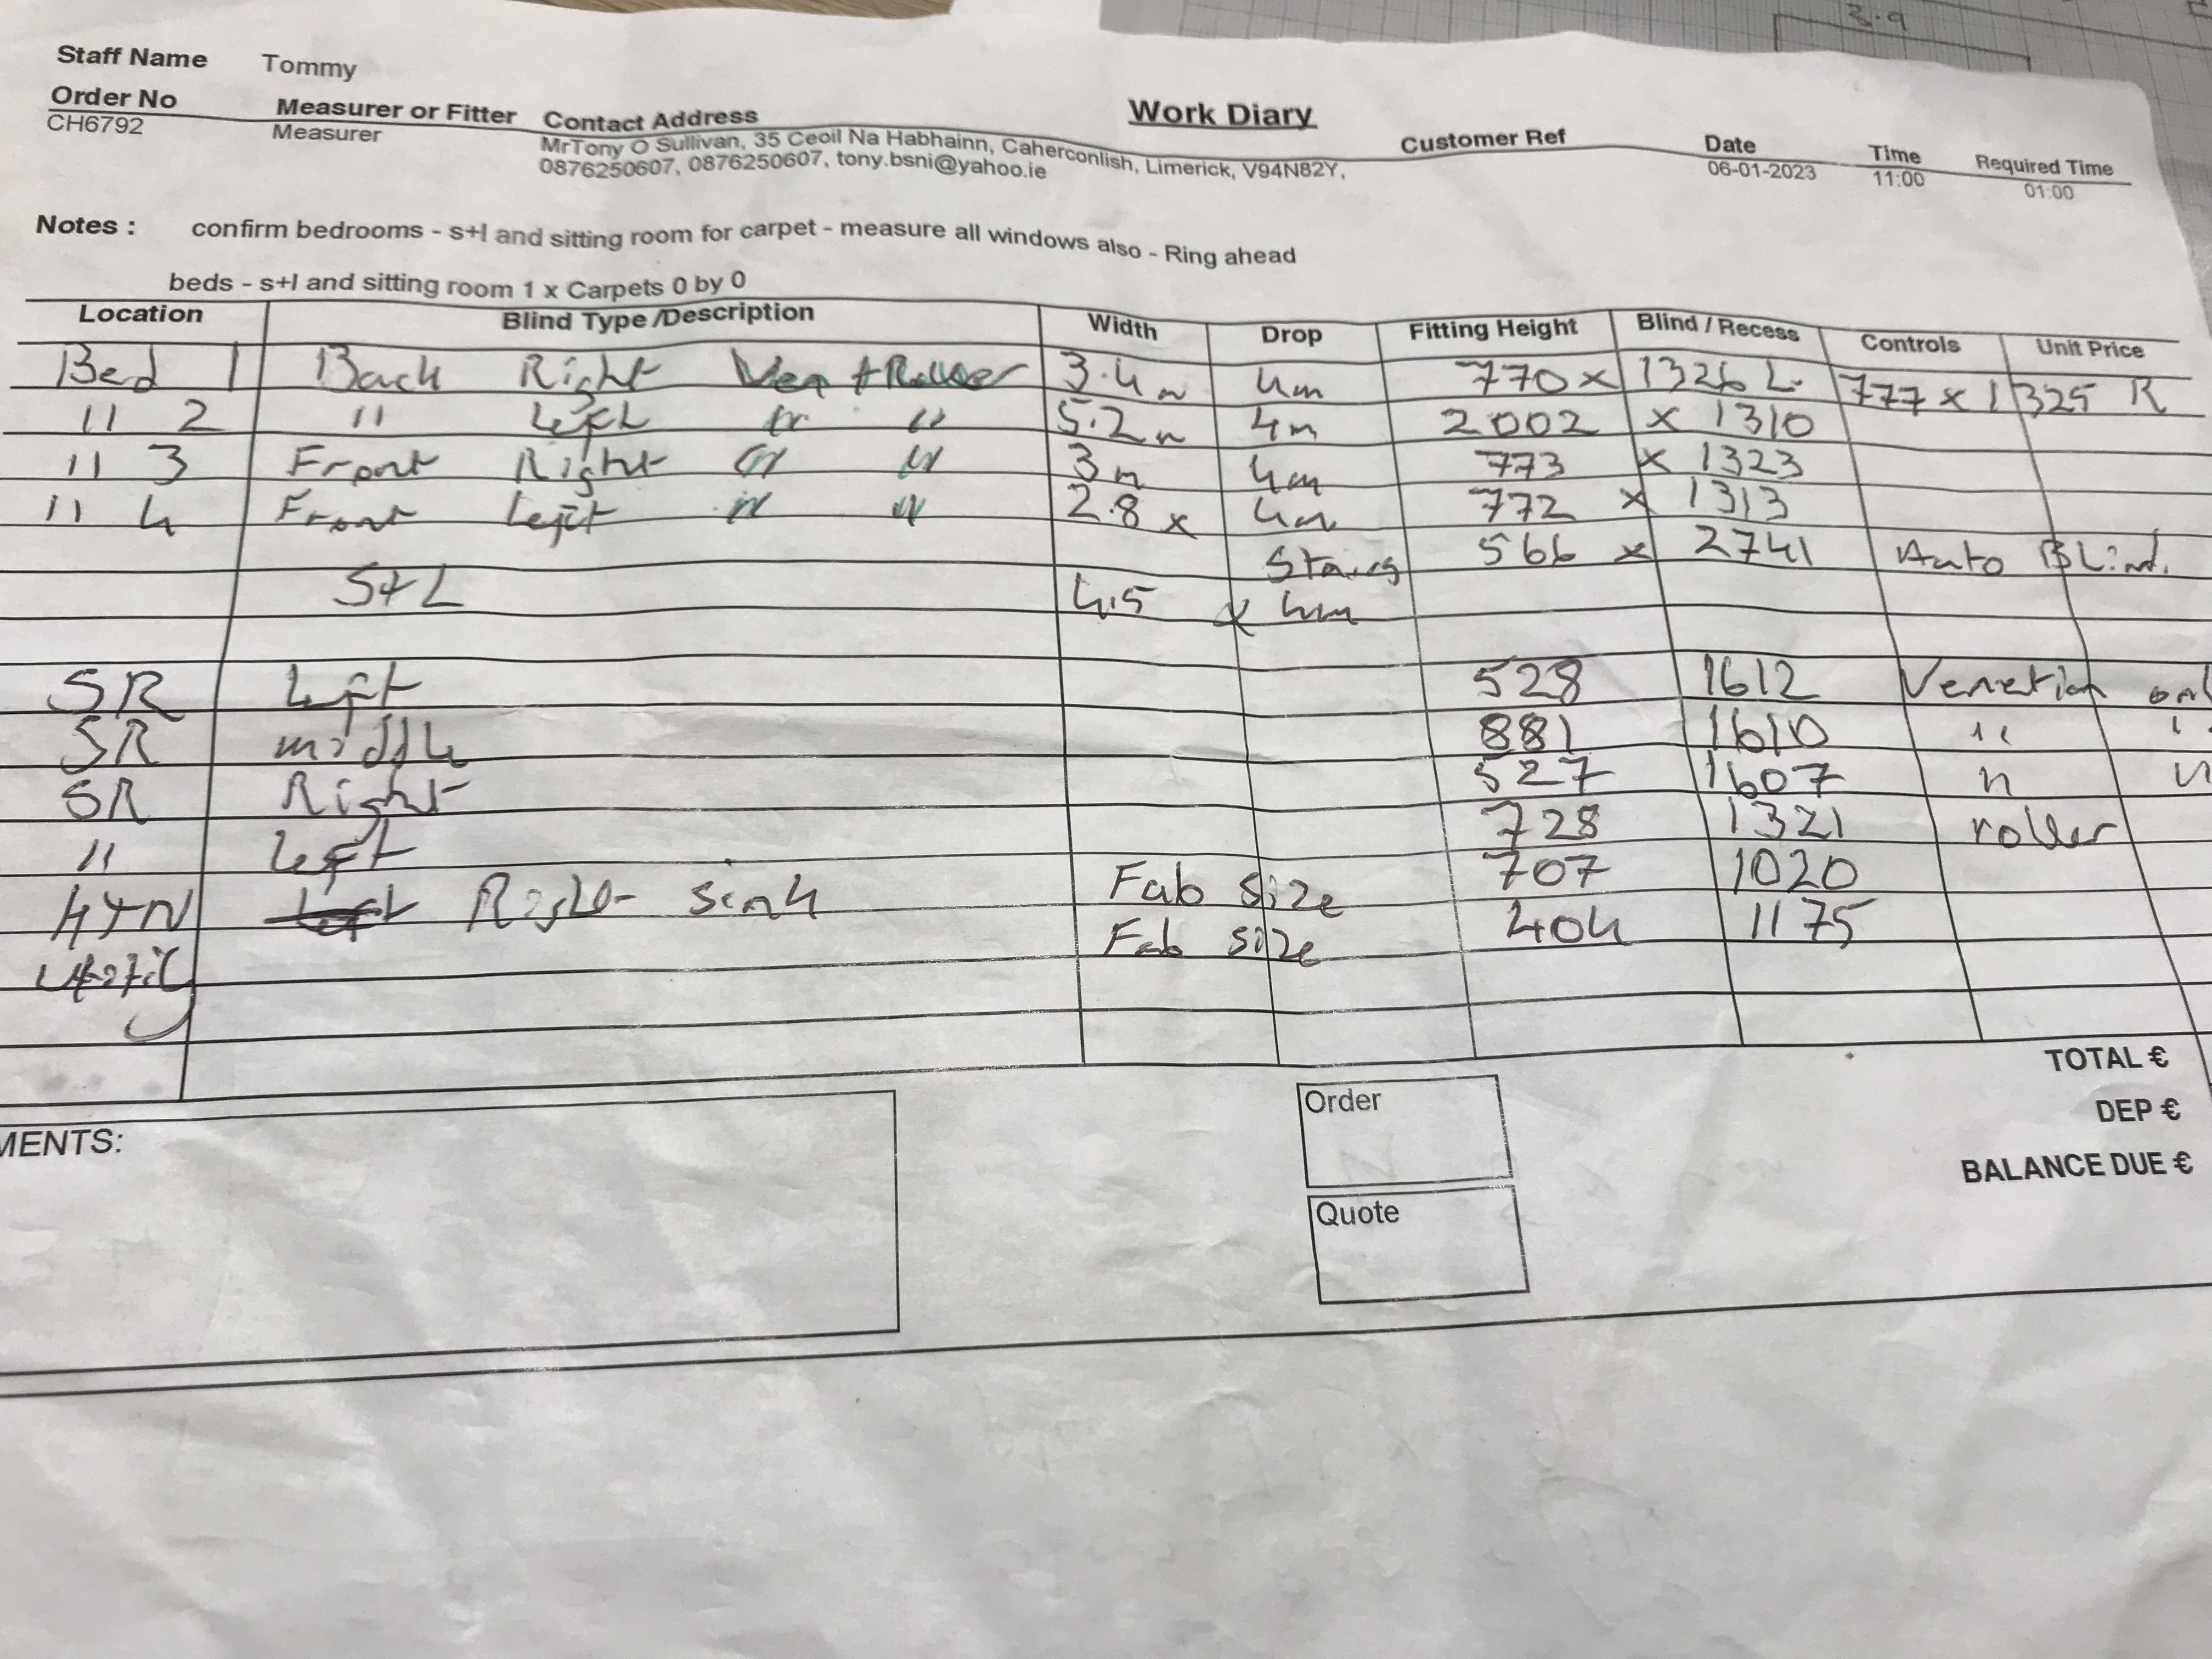 3.9
Staff Name Tommy
Work Diary
Order No Measurer or Fitter Contact Address Customer Ref Date Time Required Time
CH6792 Measurer MrTony O Sullivan, 35 Ceoil Na Habhainn, Caherconlish, Limerick, V94N82Y, 06-01-2023 11:00 01:00
0876250607, 0876250607, tony.bsni@yahoo.ie
Notes : confirm bedrooms - s+l and sitting room for carpet - measure all windows also - Ring ahead
beds - s+l and sitting room 1 x Carpets 0 by 0
Location Blind Type /Description Width Drop Fitting Height Blind / Recess Controls Unit Price
Bed 1 Back Right Ven + Roller 3.4m 4m 770 x 1326 L. 777 x 1325 R
" 2 " Left " " 5.2m 4m 2002 x 1310
" 3 Front Right " " 3m 4m 773 x 1323
" 4 Front Left " " 2.8 x 4m 772 x 1313
Stairs 566 x 2741 Auto Blind.
S+L 4.5 x 4m
SR Left 528 1612 Venetian onl
SR middle 881 1610 " "
SR Right 527 1607 " "
" Left 728 1321 roller
KTN Right sink Fab size 707 1020
Utility Fab size 404 1175
TOTAL €
DEP €
BALANCE DUE €
MENTS:
Order
Quote